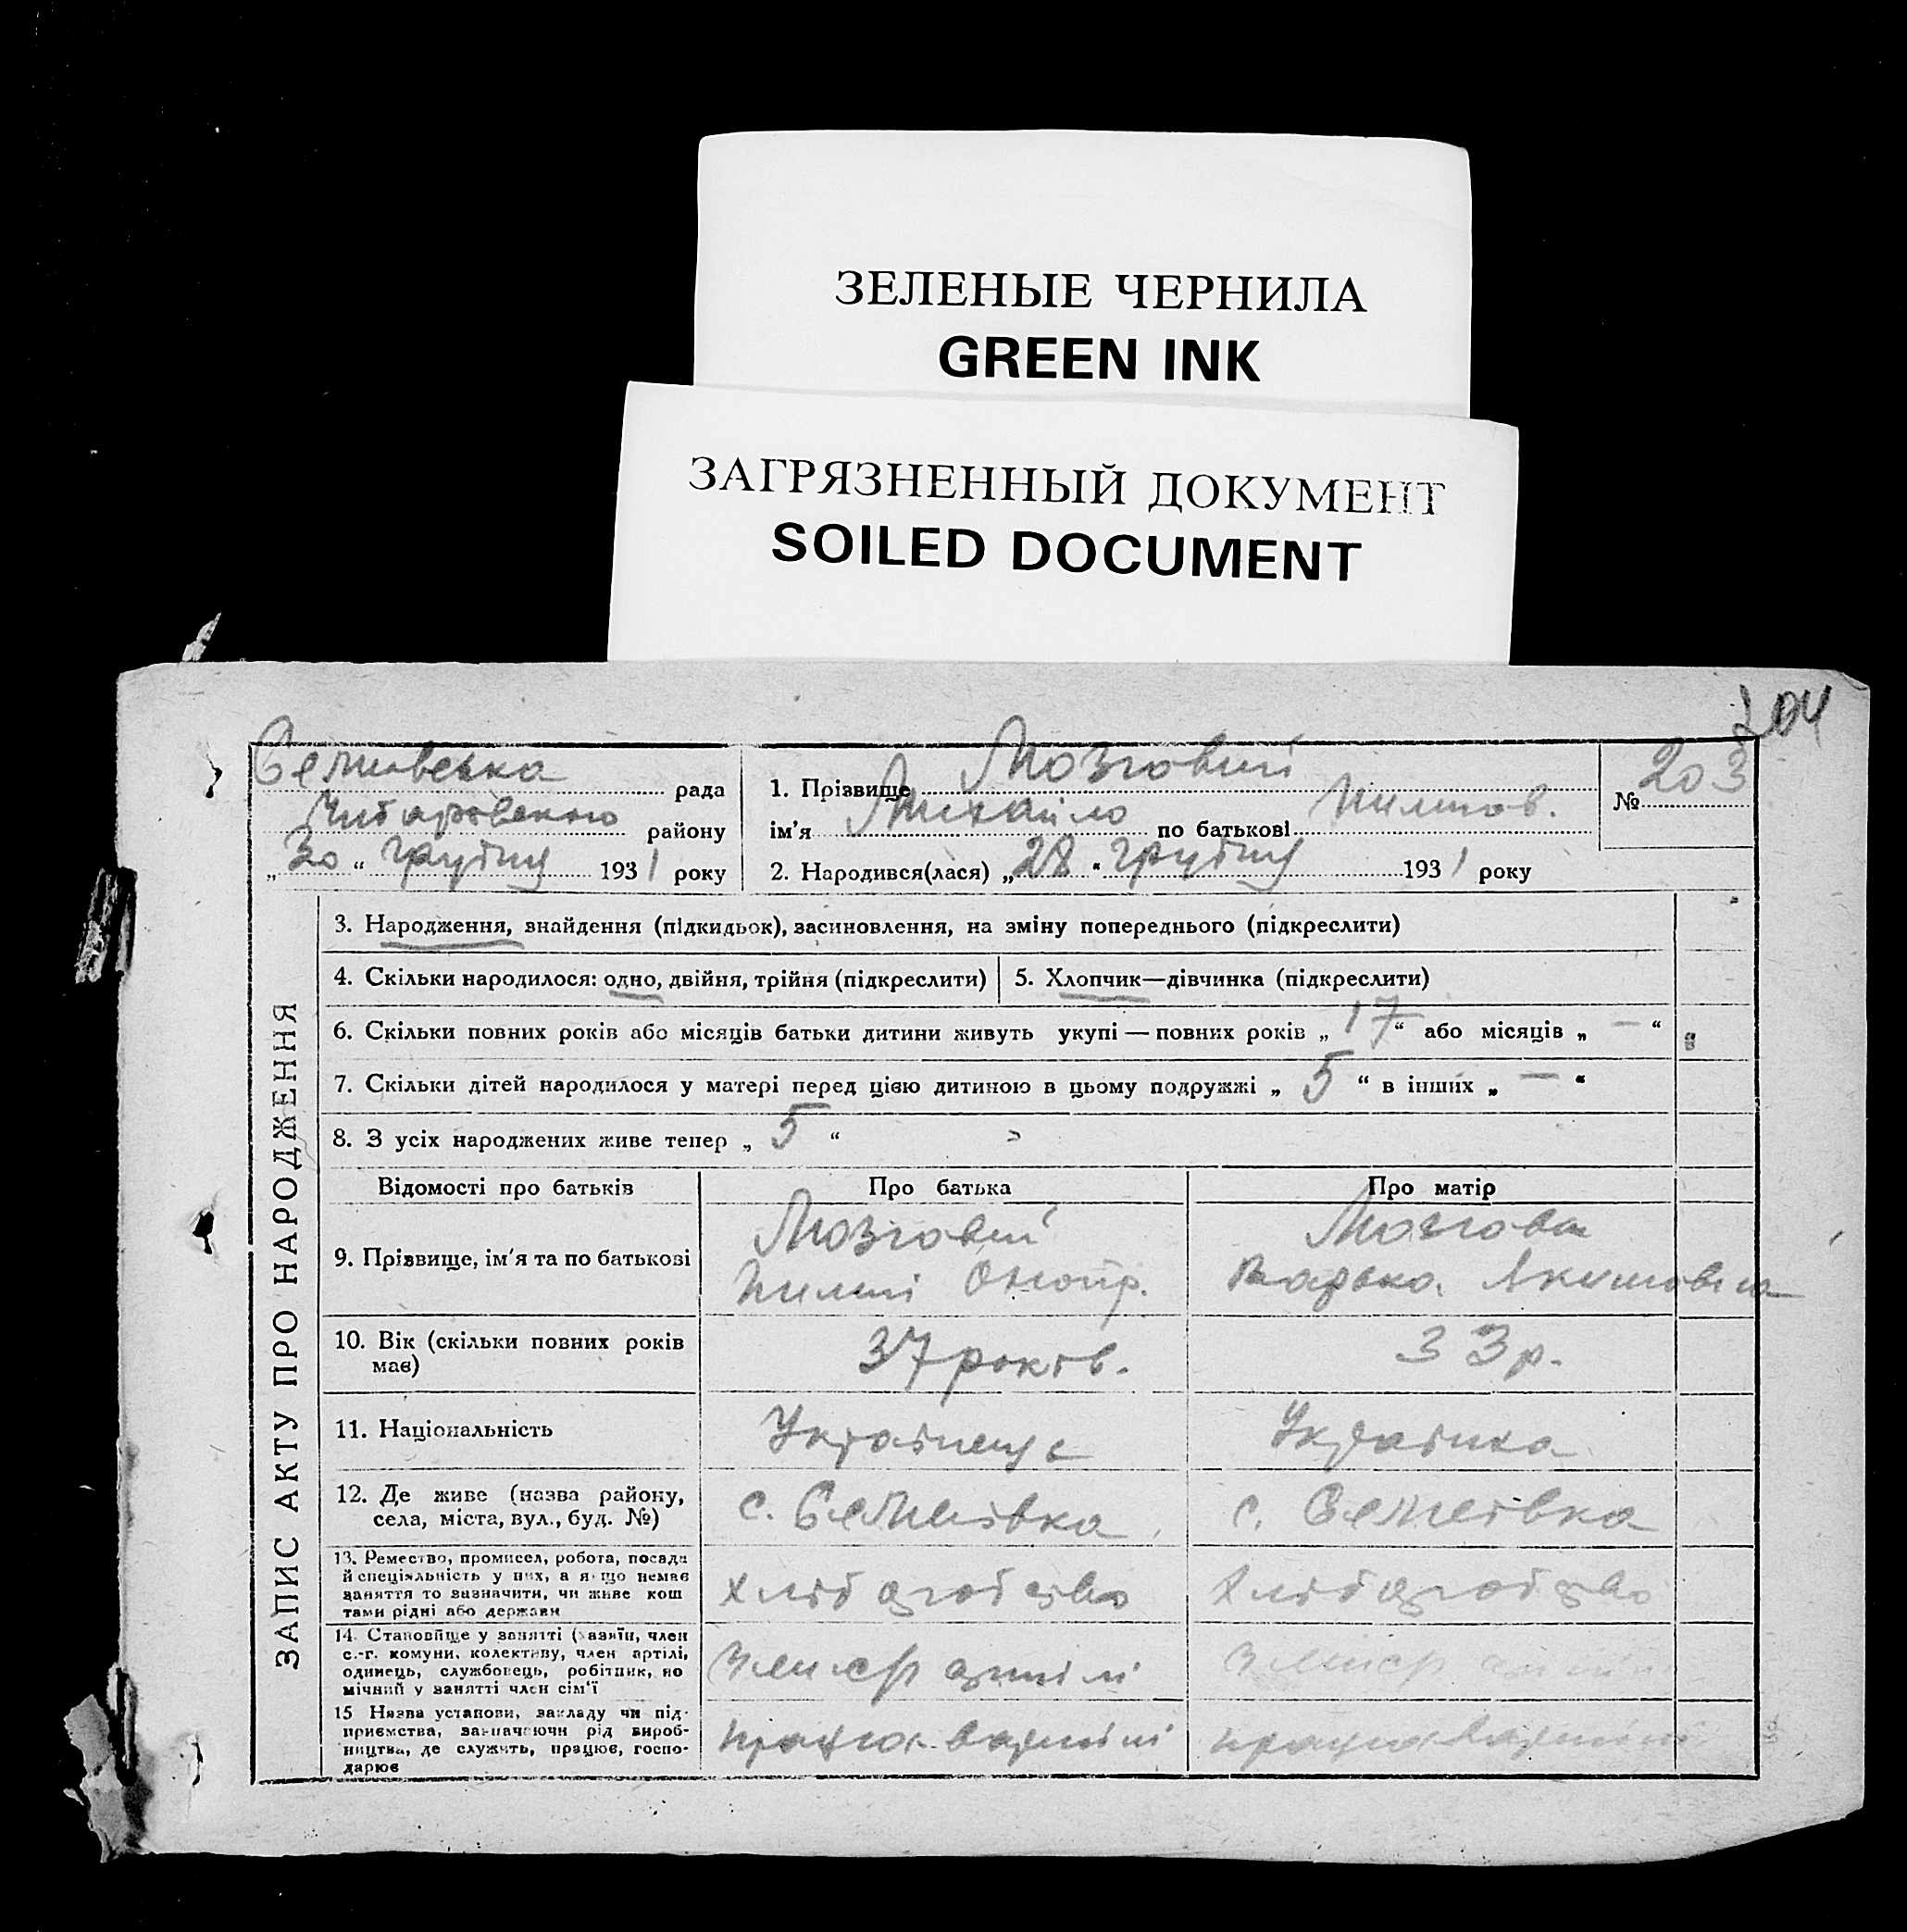 ЗЕЛЕНЫЕ ЧЕРНИЛА
GREEN INK
ЗАГРЯЗНЕННЫЙ ДОКУМЕНТ
SOILED DOCUMENT
204
рада
району
„30“ грудня 1931 року
1. Прізвище Мозговий
ім'я Михайло по батькові
№ 203
2. Народився(лася) „28“ грудня 1931 року
ЗАПИС АКТУ ПРО НАРОДЖЕННЯ
3. Народження, знайдення (підкидьок), засиновлення, на зміну попереднього (підкреслити)
4. Скільки народилося: одно, двійня, трійня (підкреслити)
5. Хлопчик—дівчинка (підкреслити)
6. Скільки повних років або місяців батьки дитини живуть укупі — повних років „17“ або місяців „—“
7. Скільки дітей народилося у матері перед цією дитиною в цьому подружжі „5“ в інших „—“
8. З усіх народжених живе тепер „5“
Відомості про батьків
Про батька
Про матір
9. Прізвище, ім'я та по батькові
Мозговий
Мозгова
10. Вік (скільки повних років
має)
37 років.
33 р.
11. Національність
Українець
Українка
12. Де живе (назва району,
села, міста, вул., буд. №)
с. Семенівка
с. Семенівка
13. Ремество, промисел, робота, посада
й спеціяльність у них, а якщо немає
заняття то зазначити, чи живе кош
тами рідні або держави
хліборобство
хліборобство
14. Становище у занятті (хазяїн, член
с.-г. комуни, колективу, член артілі,
одинець, службовець, робітник, по
мічний у занятті член сім'ї
член артілі
15 Назва установи, закладу чи під-
приємства, зазначаючи рід вироб-
ництва, де служить, працює, госпо-
дарює
працює в артілі
працює в артілі